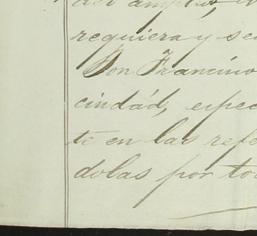 del amplio,
requiera y se
Don Francisco
ciudád, espec
te en las refe
dolas por to